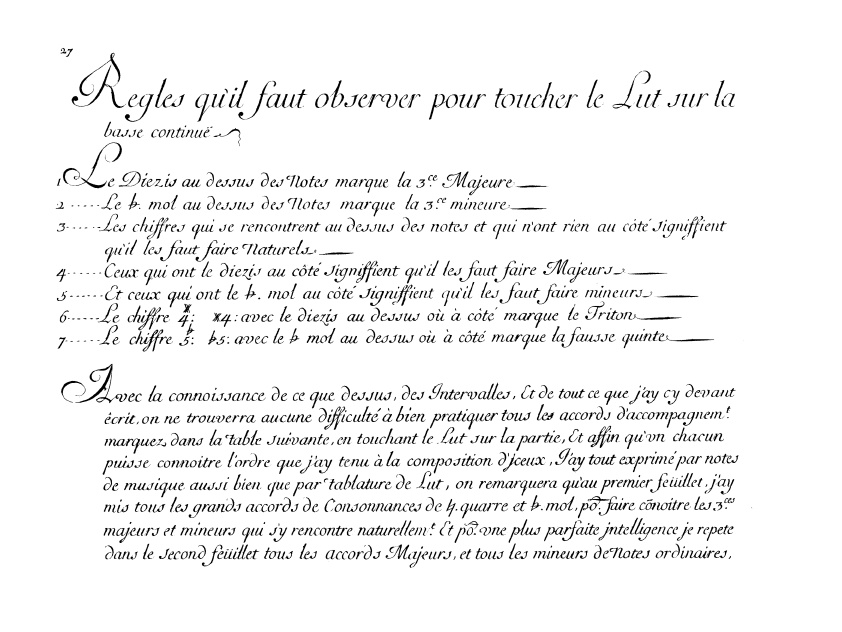 27
Regles qu'il faut observer pour toucher le Lut sur la
basse continuë
1 Le Diezis au dessus des Notes marque la 3.ce Majeure
2 ..... Le b. mol au dessus des Notes marque la 3.ce mineure
3 ..... Les chiffres qui se rencontrent au dessus des notes et qui n'ont rien au côté signiffient
qu'il les faut faire Naturels.
4 ..... Ceux qui ont le diezis au côté signiffient qu'il les faut faire Majeurs
5 ..... Et ceux qui ont le b. mol au côté signiffient qu'il les faut faire mineurs
6 ..... Le chiffre x4: x4: avec le diezis au dessus où à côté marque le Triton
7 ..... Le chiffre b5: b5: avec le b mol au dessus où à côté marque la fausse quinte
Avec la connoissance de ce que dessus, des Intervalles, Et de tout ce que j'ay cy devant
écrit, on ne trouverra aucune difficulté à bien pratiquer tous les accords d'accompagnem.t
marquez dans la table suivante, en touchant le Lut sur la partie, Et affin qu'vn chacun
puisse connoitre l'ordre que j'ay tenu à la composition d'jceux, J'ay tout exprimé par notes
de musique aussi bien que par tablature de Lut, on remarquera qu'au premier feüillet, j'ay
mis tous les grands accords de Consonnances de ♮. quarre et b. mol, po.r faire cõnoitre les 3.ces
majeurs et mineurs qui s'y rencontre naturellem.t Et po.r vne plus parfaite jntelligence je repete
dans le second feüillet tous les accords Majeurs, et tous les mineurs de Notes ordinaires,